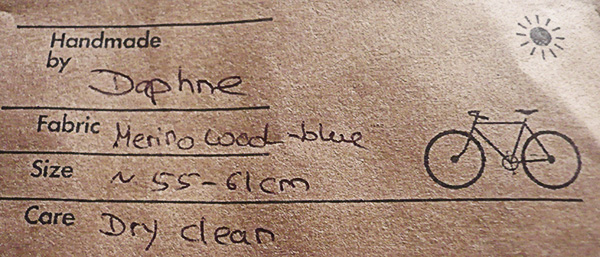 Handmade
by Daphne
Fabric Merino wool-blue
Size ~ 55-61cm
Care Dry clean